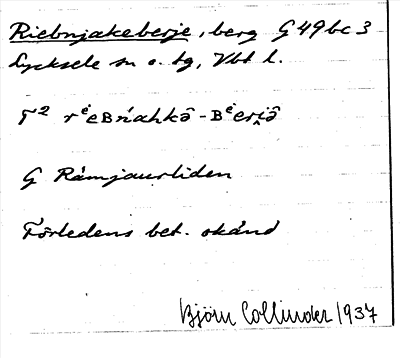 Riebnjakeberje, berg G 49 bc 3
Lycksele sn o. tg, Vbt l.
T² rᵉ̇eʙńahkȏ-ʙᵉ̇eri̯ȏ
G Råmjaurliden
Förledens bet. okänd
Björn Collinder 1937